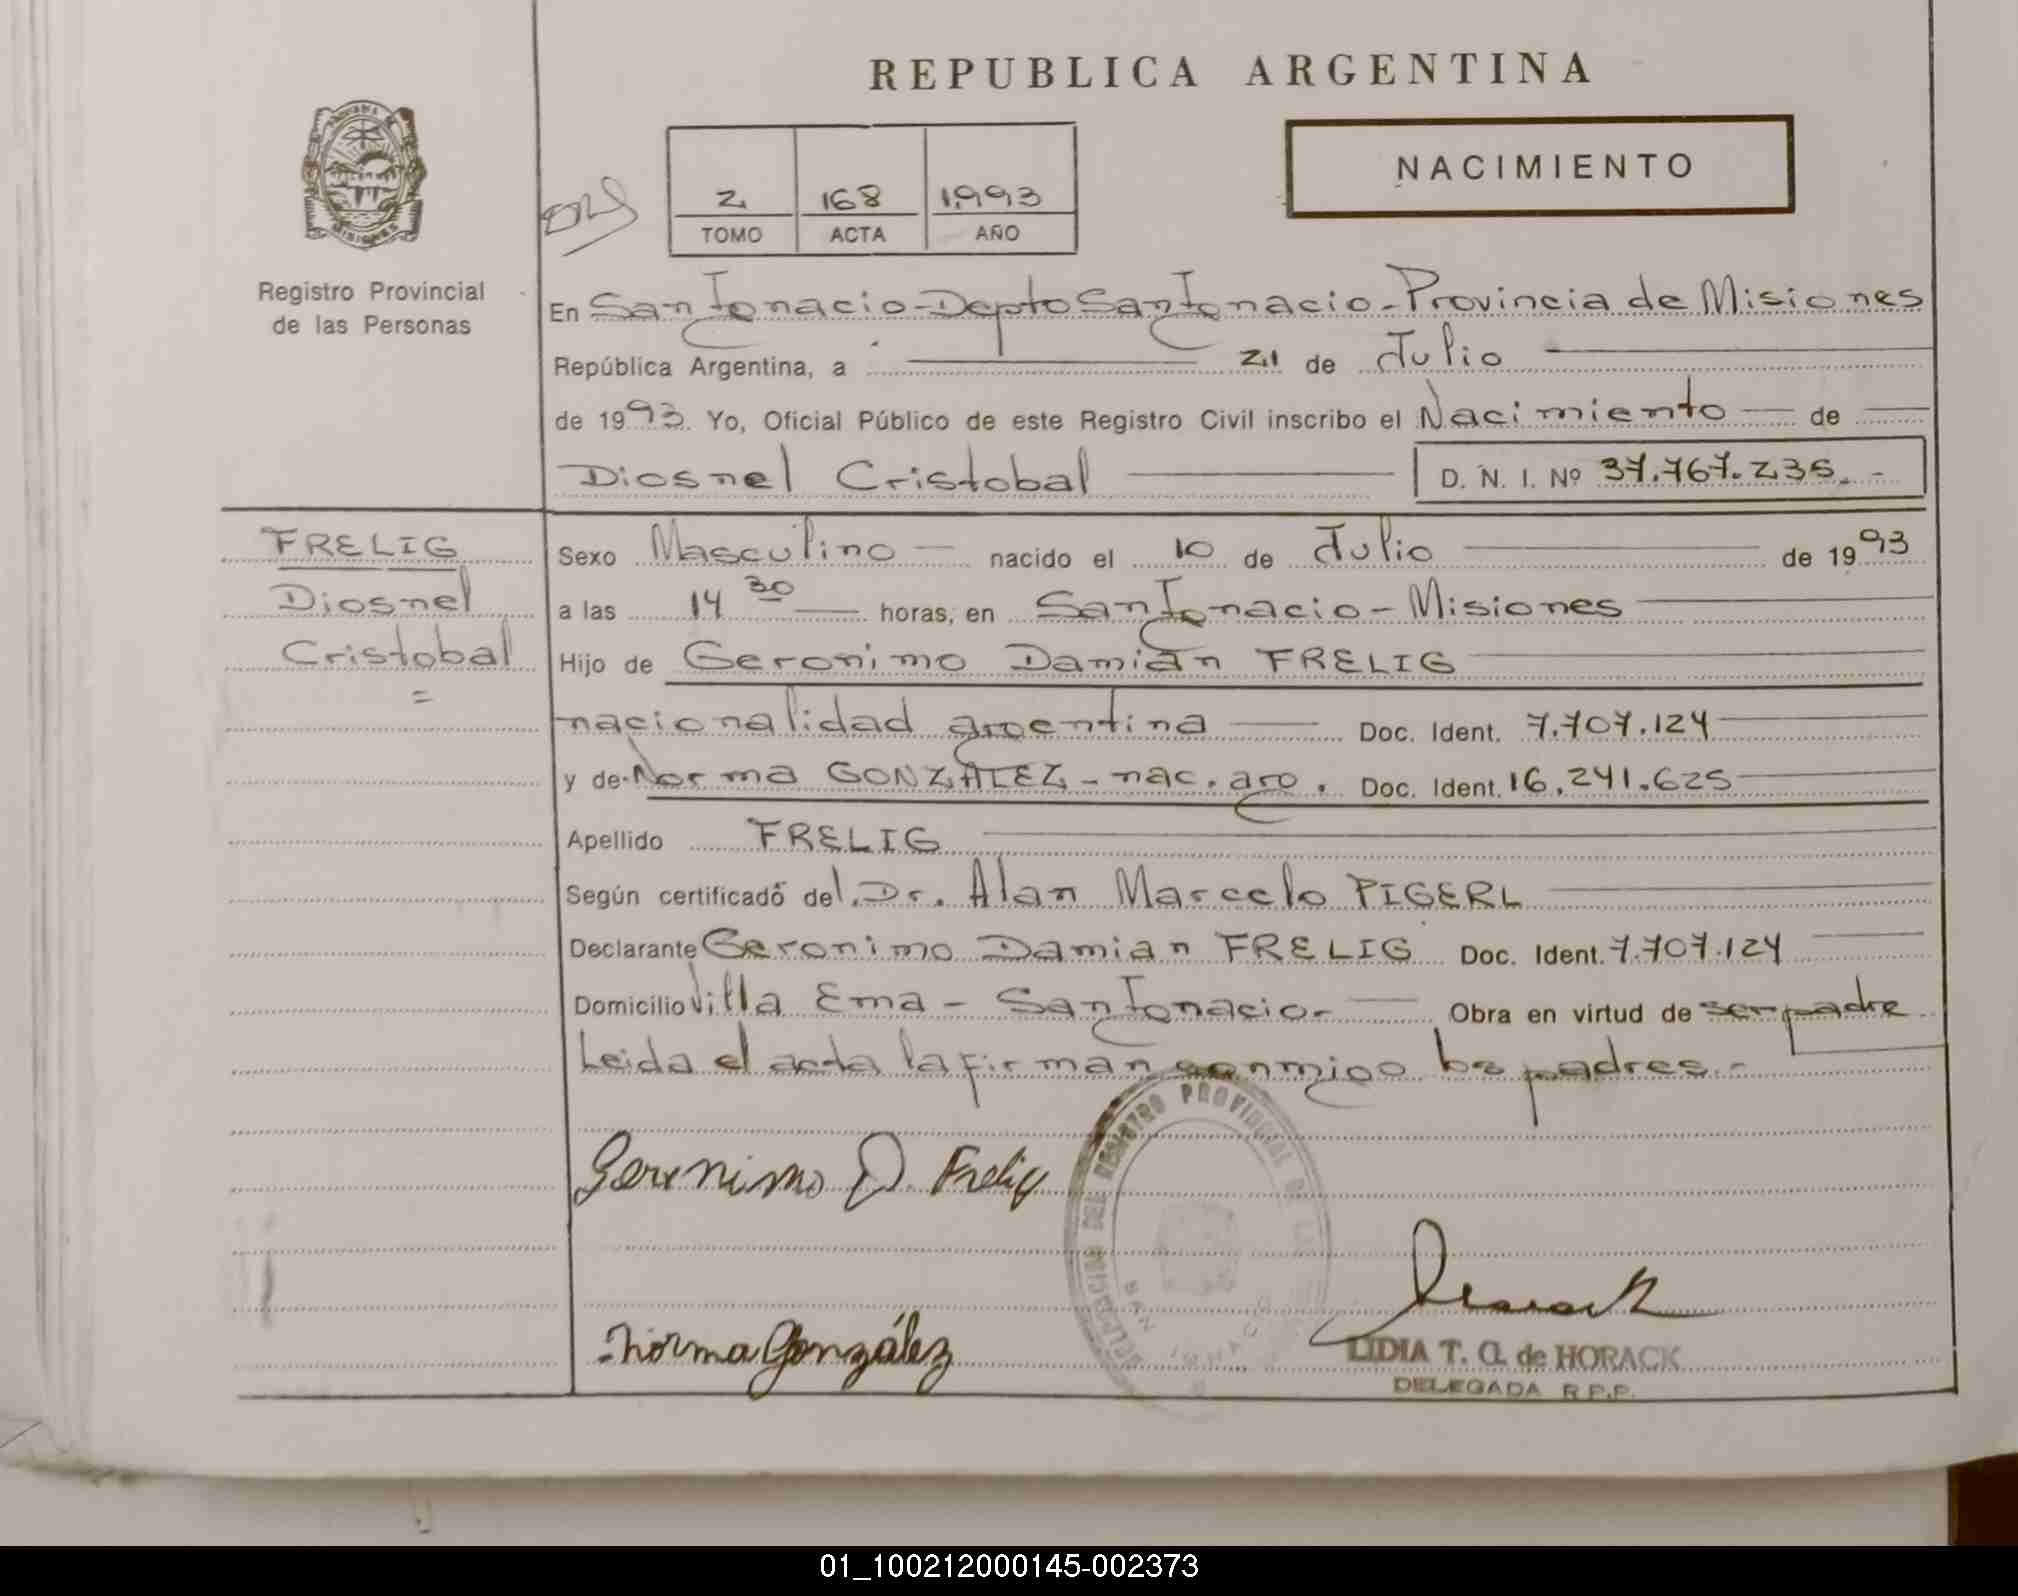 REPUBLICA ARGENTINA
NACIMIENTO
2 168 1.993
TOMO ACTA AÑO
MISIONES
Registro Provincial
de las Personas
En San Ignacio - Depto San Ignacio - Provincia de Misiones
República Argentina, a 21 de Julio
de 1993. Yo, Oficial Público de este Registro Civil inscribo el Nacimiento de
Diosnel Cristobal D. N. I. Nº 37.767.235.-
FRELIG
Diosnel
Cristobal
=
Sexo Masculino nacido el 10 de Julio de 1993
a las 14 30 horas, en San Ignacio - Misiones
Hijo de Geronimo Damián FRELIG
nacionalidad argentina Doc. Ident. 7.707.124
y de Norma GONZALEZ - nac. arg. Doc. Ident. 16.241.625
Apellido FRELIG
Según certificado del Dr. Alan Marcelo PIGERL
Declarante Geronimo Damian FRELIG Doc. Ident. 7.707.124
Domicilio Villa Ema - San Ignacio - Obra en virtud de ser padre
Leida el acta la firman conmigo los padres.-
Geronimo D. Frelig
DELEGACION DEL REGISTRO PROVINCIAL DE LAS
SAN IGNACIO
Norma González
Horack
LIDIA T. G. de HORACK
DELEGADA R.P.P.
01_100212000145-002373